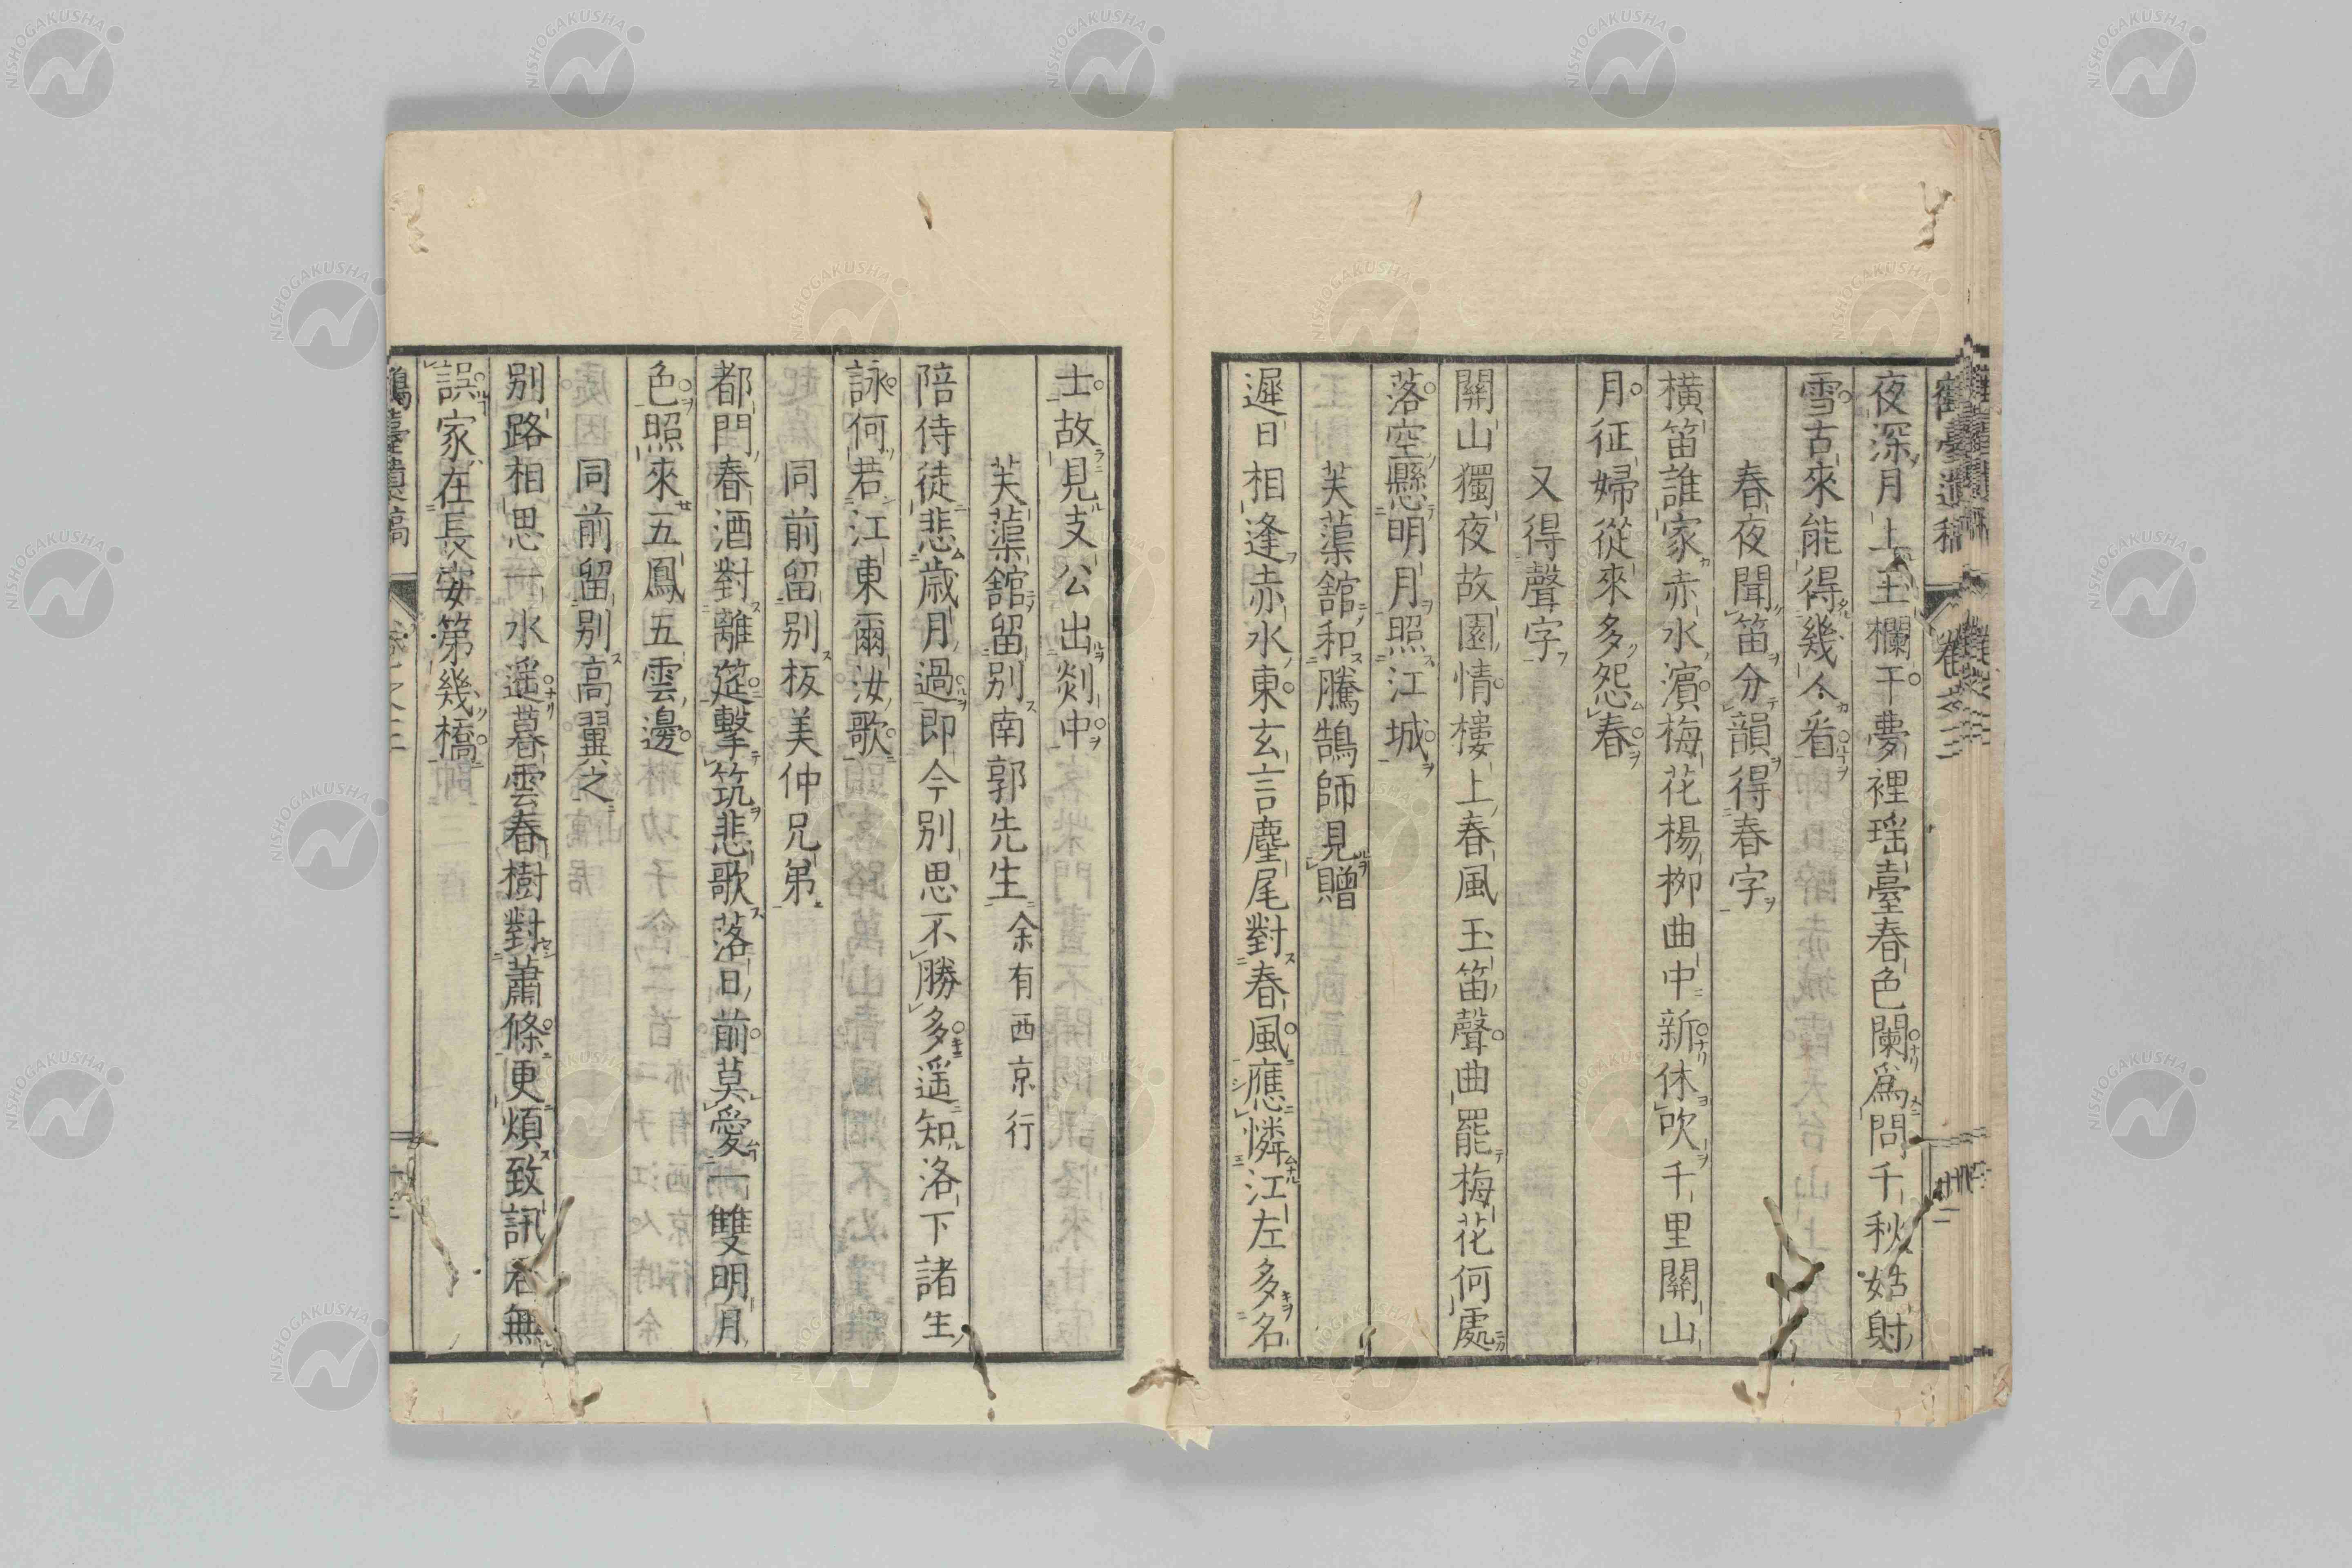 鶴臺遺稿 卷之三
夜深月上玉欄干夢裡瑶臺春色闌爲問千秋姑射
雪古來能得幾人看
春夜聞笛分韻得春字
橫笛誰家赤水濱梅花楊柳曲中新休吹千里關山
月征婦從來多怨春
又得聲字
關山獨夜故園情樓上春風玉笛聲曲罷梅花何處
落空懸明月照江城
芙蕖舘和騰鵠師見贈
遲日相逢赤水東玄言麈尾對春風應憐江左多名
士故見支公出剡中
芙蕖舘留別南郭先生 余有西京行
陪侍徒悲歳月過即今別思不勝多遥知洛下諸生
詠何若江東爾汝歌
同前留別板美仲兄弟
都門春酒對離筵擊筑悲歌落日前莫愛一雙明月
色照來五鳳五雲邊
同前留別高翼之
別路相思一水遥暮雲春樹對蕭條更煩致訊君無
誤家在長安第幾橋
鶴臺遺稿 卷之三
NISHOGAKUSHA